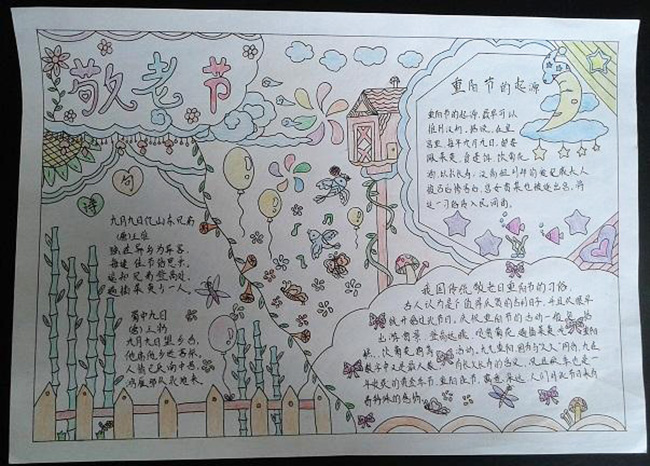 敬老节
诗句
九月九日忆山东兄弟
(唐)王维
独在异乡为异客，
每逢佳节倍思亲。
遥知兄弟登高处，
遍插茱萸少一人。
蜀中九日
(唐)王勃
九月九日望乡台，
他席他乡送客杯。
人情已厌南中苦，
鸿雁那从北地来。
重阳节的起源
重阳节的起源，最早可以
推到汉初。据说，在皇
宫里，每年九月九日，都要
佩茱萸，食蓬饵，饮菊花
酒，以求长寿；汉高祖刘邦的爱妃戚夫人
被吕后惨害后，宫女贾某也被逐出宫，将
这一习俗传入民间。
我国传统敬老日重阳节的习俗
古人认为是个值得庆贺的吉利日子，并且从很早
就开始过此节日。庆祝重阳节的活动一般包括
出游赏景、登高远眺、观赏菊花、遍插茱萸、吃重阳
糕、饮菊花酒等活动。九九重阳，因为与"久久"同音，九在
数字中又是最大数，有长久长寿的含意，况且秋季也是一
年收获的黄金季节，重阳佳节，寓意深远，人们对此节历来有
着特殊的感情。